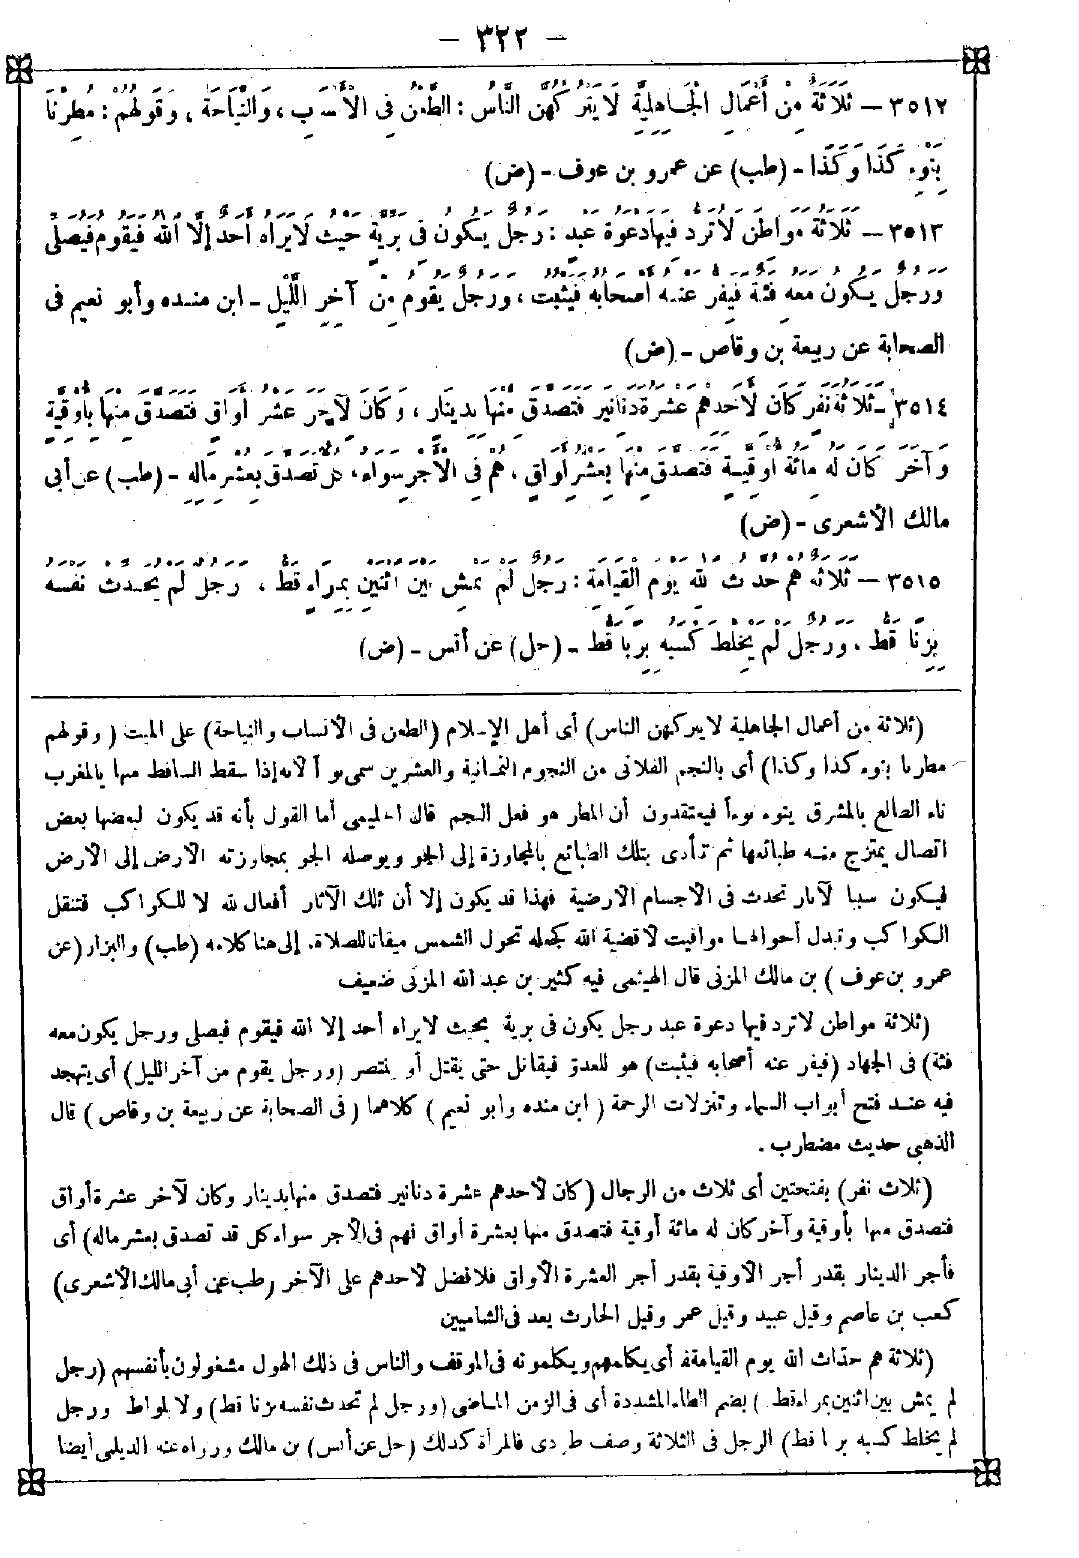 - ٣٢٢ -
٣٥١٢ - ثَلَاثَةٌ مِنْ أَعْمَالِ الْجَاهِلِيَّةِ لَا يَتْرُكُهُنَّ النَّاسُ : الطَّعْنُ فِي الْأَنْسَابِ ، وَالنِّيَاحَةُ ، وَقَوْلُهُمْ : مُطِرْنَا
بِنَوْءِ كَذَا وَكَذَا - (طب) عن عمرو بن عوف - (ض)
٣٥١٣ - ثَلَاثَةُ مَوَاطِنَ لَا تُرَدُّ فِيهَا دَعْوَةُ عَبْدٍ : رَجُلٌ يَكُونُ فِي بَرِّيَّةٍ حَيْثُ لَا يَرَاهُ أَحَدٌ إِلَّا اللّٰهُ فَيَقُومُ فَيُصَلِّي
وَرَجُلٌ يَكُونُ مَعَهُ فِئَةٌ فَيَفِرُّ عَنْهُ أَصْحَابُهُ فَيَثْبُتُ ، وَرَجُلٌ يَقُومُ مِنْ آخِرِ اللَّيْلِ - ابن منده وأبو نعيم فى
الصحابة عن ربيعة بن وقاص - (ض)
٣٥١٤ - ثَلَاثَةُ نَفَرٍ كَانَ لِأَحَدِهِمْ عَشَرَةُ دَنَانِيرَ فَتَصَدَّقَ مِنْهَا بِدِينَارٍ ، وَكَانَ لِآخَرَ عَشْرُ أَوَاقٍ فَتَصَدَّقَ مِنْهَا بِأُوقِيَّةٍ
وَآخَرُ كَانَ لَهُ مِائَةُ أُوقِيَّةٍ فَتَصَدَّقَ مِنْهَا بِعَشْرِ أَوَاقٍ ، هُمْ فِي الْأَجْرِ سَوَاءٌ ، كُلٌّ تَصَدَّقَ بِعُشْرِ مَالِهِ - (طب) عن أبى
مالك الأشعرى - (ض)
٣٥١٥ - ثَلَاثَةٌ هُمْ حُدَّاثُ اللّٰهِ يَوْمَ الْقِيَامَةِ : رَجُلٌ لَمْ يَمْشِ بَيْنَ اثْنَيْنِ بِمِرَاءٍ قَطُّ ، رَجُلٌ لَمْ يُحَدِّثْ نَفْسَهُ
بِزِنًا قَطُّ ، وَرَجُلٌ لَمْ يَخْلِطْ كَسْبَهُ بِرِبًا قَطُّ - (حل) عن أنس - (ض)
(ثلاثة من أعمال الجاهلية لا يتركهن الناس) أى أهل الإسلام (الطعن فى الأنساب والنياحة) على الميت (وقولهم
مطرنا بنوء كذا وكذا) أى بالنجم الفلانى من النجوم الثمانية والعشرين سمى نوءاً لأنه إذا سقط الساقط منها بالمغرب
ناء الطالع بالمشرق ينوء نوءاً فيعتقدون أن المطر هو فعل النجم قال الحليمى أما القول بأنه قد يكون لبعضها ببعض
اتصال يمتزج منه طبائعها ثم تتأدى بتلك الطبائع بالمجاورة إلى الجو ويوصله الجو بمجاورته الأرض إلى الأرض
فيكون سببا لآثار تحدث فى الأجسام الأرضية فهذا قد يكون إلا أن تلك الآثار أفعال لله لا للكواكب فتنقل
الكواكب وتبدل أحوالها مواقيت لأقضية الله كجعله تحول الشمس ميقاتا للصلاة. إلى هنا كلامه (طب) والبزار (عن
عمرو بن عوف) بن مالك المزنى قال الهيثمى فيه كثير بن عبد الله المزنى ضعيف
(ثلاثة مواطن لا ترد فيها دعوة عبد رجل يكون فى برية بحيث لا يراه أحد إلا الله فيقوم فيصلى ورجل يكون معه
فئة) فى الجهاد (فيفر عنه أصحابه فيثبت) هو للعدو فيقاتل حتى يقتل أو ينتصر (ورجل يقوم من آخر الليل) أى يتهجد
فيه عند فتح أبواب السماء وتنزلات الرحمة (ابن منده وأبو نعيم) كلاهما (فى الصحابة عن ربيعة بن وقاص) قال
الذهبى حديث مضطرب .
(ثلاث نفر) بفتحتين أى ثلاث من الرجال (كان لأحدهم عشرة دنانير فتصدق منها بدينار وكان لآخر عشرة أواق
فتصدق منها بأوقية وآخر كان له مائة أوقية فتصدق منها بعشرة أواق فهم فى الأجر سواء كل قد تصدق بعشر ماله) أى
فأجر الدينار بقدر أجر الأوقية بقدر أجر العشرة الأواق فلا فضل لأحدهم على الآخر (طب عن أبى مالك الأشعرى)
كعب بن عاصم وقيل عبيد وقيل عمر وقيل الحارث يعد فى الشاميين
(ثلاثة هم حدّاث الله يوم القيامة) أى يكلمهم ويكلمونه فى الموقف والناس فى ذلك الهول مشغولون بأنفسهم (رجل
لم يمش بين اثنين بمراء قط) بضم الطاء المشددة أى فى الزمن الماضى (ورجل لم تحدث نفسه بزنا قط) ولا بلواط ورجل
لم يخلط كسبه بربا قط) الرجل فى الثلاثة وصف طردى فالمرأة كذلك (حل عن أنس) بن مالك ورواه عنه الديلى أيضا